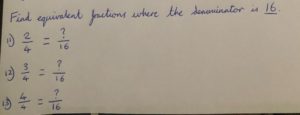 Find equivalent fractions where the denominator is 16.
11) 2/4 = ?/16
12) 3/4 = ?/16
13) 4/4 = ?/16